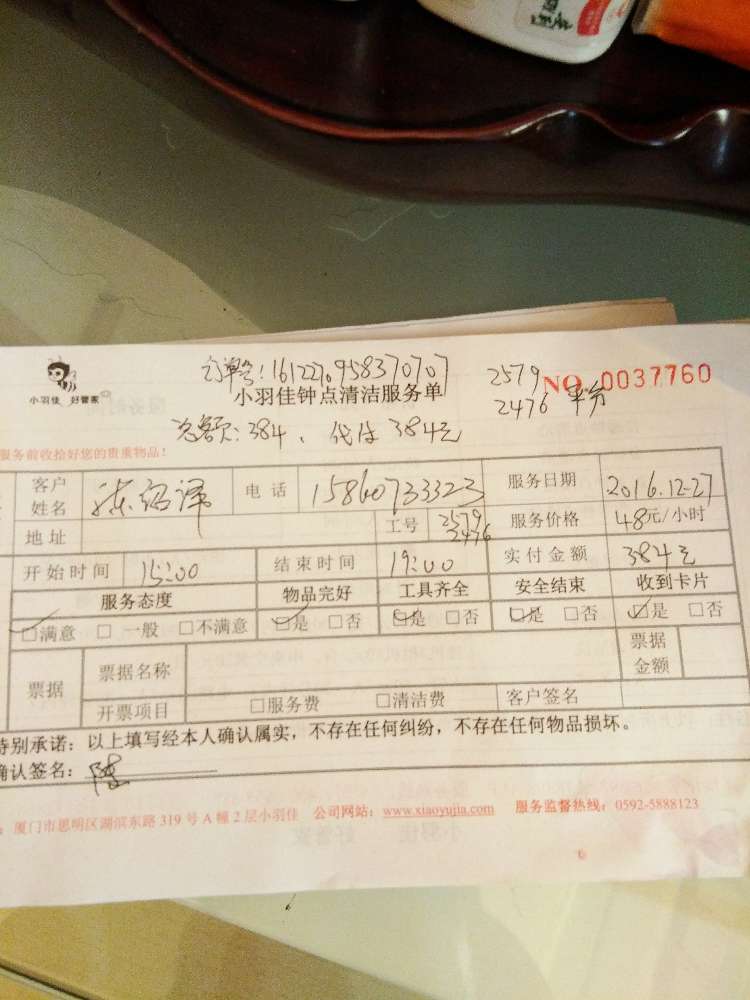 订单号:161227095837070７
小羽佳 好管家
小羽佳钟点清洁服务单
2579
2476 平分
NO 0037760
总额:384、代付384元
服务前收拾好您的贵重物品!
客户姓名 电话 15860733323 服务日期 2016.12-27
地址 工号 2579 2476 服务价格 48元/小时
开始时间 15:00 结束时间 19:00 实付金额 384元
服务态度 物品完好 工具齐全 安全结束 收到卡片
☑满意 □ 一般 □不满意 ☑是 □否 ☑是 □否 ☑是 □否 ☑是 □否
票据 票据名称 票据金额
开票项目 □服务费 □清洁费 客户签名
特别承诺:以上填写经本人确认属实,不存在任何纠纷,不存在任何物品损坏。
确认签名:陈
:厦门市思明区湖滨东路319号A幢2层小羽佳 公司网站:www.xiaoyujia.com 服务监督热线:0592-5888123